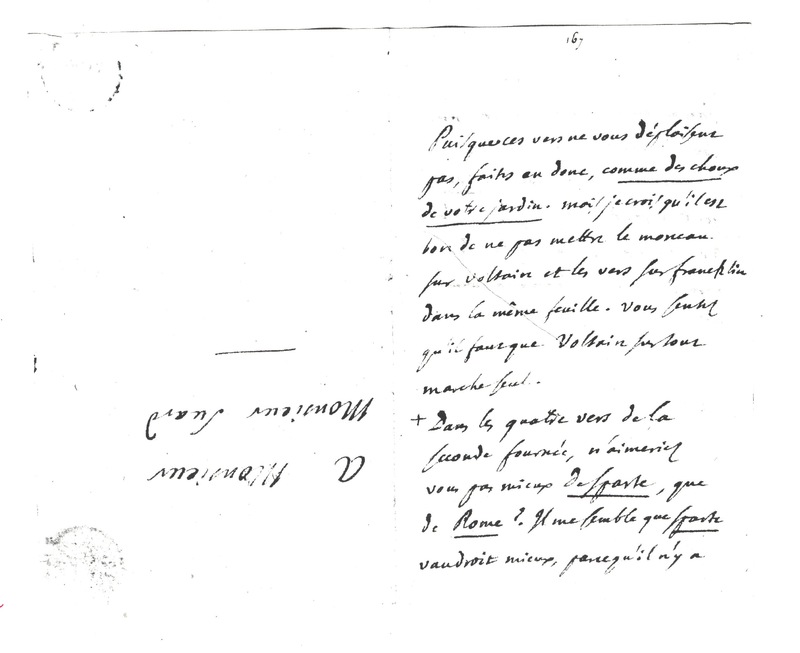 167
Puisque ces vers ne vous déplaisent
pas, faites en donc, comme des choux
de votre jardin. mais je crois qu'il est
bon de ne pas mettre le morceau
sur voltaire et les vers sur francklin
dans la même feuille. vous sentez
qu'il faut que Voltaire surtout
marche seul.
+ Dans les quatre vers de la
seconde fournée, n'aimeriez
vous pas mieux de sparte, que
de Rome ? Il me semble que sparte
vaudroit mieux, parcequ'il n'y a
A Monsieur
Monsieur Suard